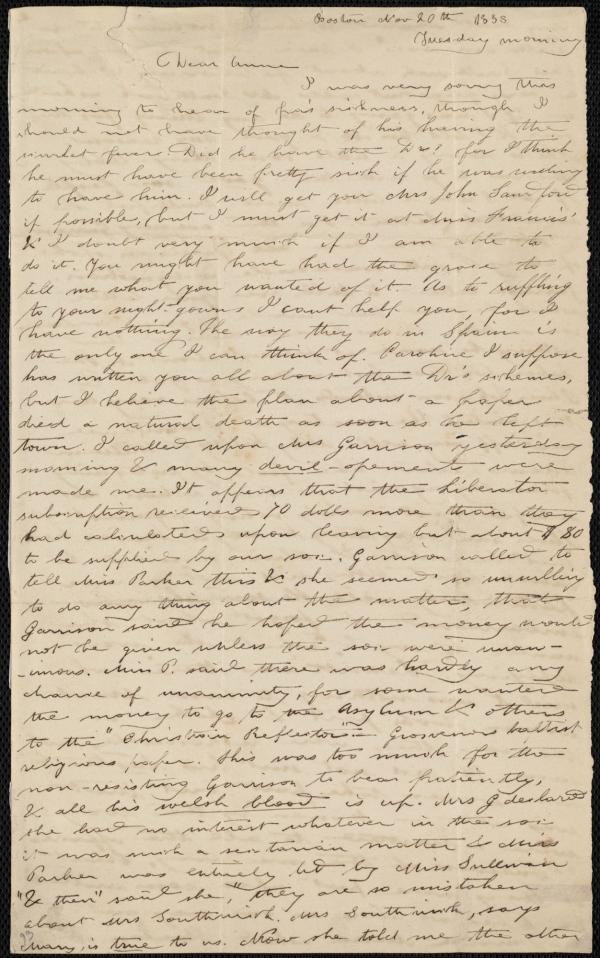 Boston Nov 20th 1838
Tuesday morning
Dear Anne
I was very sorry this
morning to hear of fra's sickness, though I
should not have thought of his having the
scarlet fever. Did he have the Dr? for I think
he must have been pretty sick if he was willing
to have him. I will get you Mrs John Sandford
if possible, but I must get it at Miss Francis'
& I doubt very much if I am able to
do it. You might have had the grace to
tell me what you wanted of it. As to ruffling
to your night-gowns I cant help you, for I
have nothing. The way they do in Spain is
the only one I can think of. Caroline I suppose
has written you all about the Dr's schemes,
but I believe the plan about a paper
died a natural death as soon as he left
town. I called upon Mrs Garrison yesterday
morning & many devil-opements were
made me. It appears that the Liberator
subscription received 70 dolls more than they
had calculated upon leaving but about $80
to be supplied by our soc. Garrison called to
tell Miss Parker this & she seemed so unwilling
to do any thing about the matter, that
Garrison said he hoped the money would
not be given unless the soc were unan-
-imous. Miss P. said there was hardly any
chance of unanimity, for some wanted
the money to go to the Asylum & others
to the "Christian Reflector" - Grosvenor's baptist
religious paper. This was too much for the
non-resisting Garrison to bear patiently,
& all his welsh blood is up. Mrs G declared
she had no interest whatever in the soc
it was such a sectarian matter & Miss
Parker was entirely led by Miss Sullivan
"& then" said she, "they are so mistaken
about Mrs Southwick. Mrs Southwick, says
Mary, is true to us. Now she told me the other